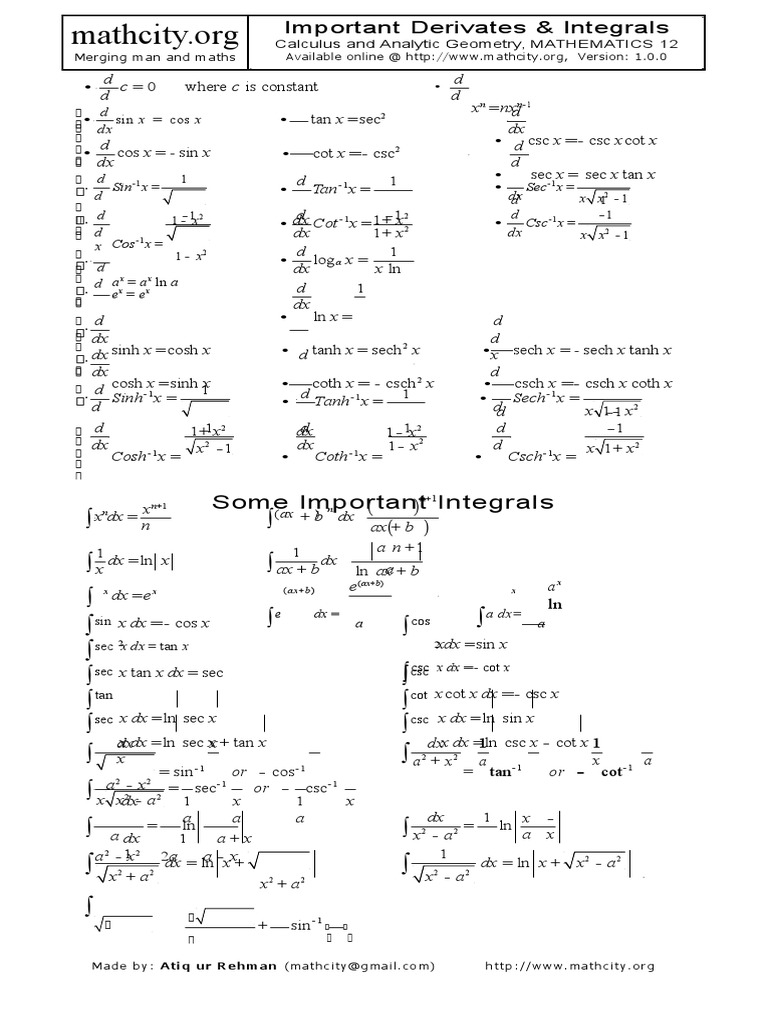 mathcity.org
Merging man and maths
Important Derivates & Integrals
Calculus and Analytic Geometry, MATHEMATICS 12
Available online @ http://www.mathcity.org, Version: 1.0.0
• d/d c = 0 where c is constant • d/d xⁿ = nxⁿ⁻¹
• d/dx sin x = cos x • tan x = sec² d/dx
• d/dx cos x = - sin x • cot x = - csc² • d/d csc x = - csc x cot x
• sec x = sec x tan x
d/d Sin⁻¹x = 1/√ • d/ Tan⁻¹x = 1 • Sec⁻¹x = 1/x√x² - 1
1 - x² 1 + x²
d/d x Cos⁻¹x = -1/√ 1 - x² • d/dx Cot⁻¹x = -1/1 + x² • d/dx Csc⁻¹x = -1/x√x² - 1
• d/dx logₐ x = 1/x ln
d aˣ = aˣ ln a
eˣ = eˣ d/dx 1
• ln x =
d/dx sinh x = cosh x • d tanh x = sech² x • d/x sech x = - sech x tanh x
d/dx cosh x = sinh x • coth x = - csch² x • csch x = - csch x coth x
d/d Sinh⁻¹x = 1/√ • d Tanh⁻¹x = 1 • Sech⁻¹x = x√1 - x²
1 + x² 1 - x²
d/dx Cosh⁻¹x = 1/√x² - 1 • d/dx Coth⁻¹x = 1/1 - x² • d/d Csch⁻¹x = -1/x√1 + x²
Some Important Integrals
∫xⁿdx = xⁿ⁺¹/n ∫(ax + b)ⁿ dx ( )ⁿ⁺¹/ax( + b )
∫1/x dx = ln|x| ∫1/ax + b dx |a n + 1/ln ax + b
∫ x dx = eˣ ∫e (ax+b) dx = e(ax+b)/a ∫a x dx = aˣ/ln a
∫sin x dx = - cos x ∫cos xdx = sin x
∫sec ²x dx = tan x
∫sec x tan x dx = sec ∫csc x dx = - cot x
∫csc
∫tan | | ∫cot x cot x dx = - csc x
∫sec x dx = ln sec x | ∫csc x dx = ln sin x
x dx = ln sec x + tan x x dx = ln csc x - cot x
∫dx/√ = sin⁻¹ x or - cos⁻¹ ∫dx/a² + x² = 1/a tan⁻¹ x/a or - 1 cot⁻¹ x/a
a² - x²
∫dx/x√x² - a² = 1/a sec⁻¹ x/a or - 1/a csc⁻¹ x/a
∫ dx/a² - x² = 1/2a ln |a + x/a - x ∫dx/x² - a² = 1 ln|x -/a x
∫1/√x² + a² dx = ln|x + √x² + a²| ∫1/√x² - a² dx = ln|x + √x² - a²|
∫√ √ + sin⁻¹
Made by: Atiq ur Rehman (mathcity@gmail.com) http://www.mathcity.org